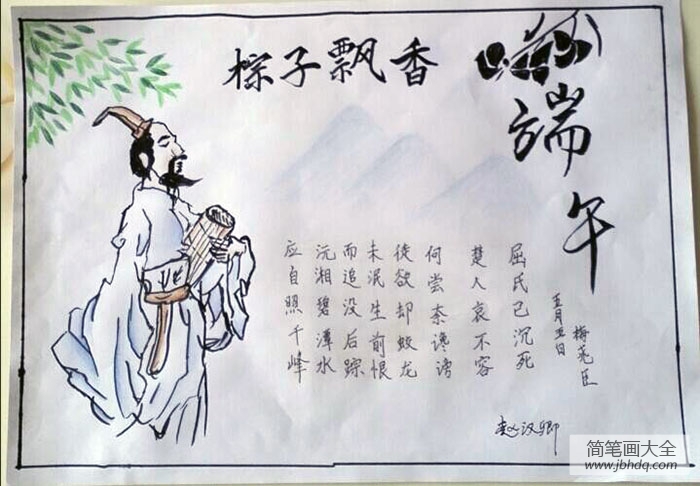 粽子飘香
端午
五月五日
梅尧臣
屈氏已沉死
楚人哀不容
何尝奈谗谤
徒欲却蛟龙
未泯生前恨
而追没后踪
沅湘碧潭水
应自照千峰
赵汉卿
简笔画大全
www.jbhdq.com